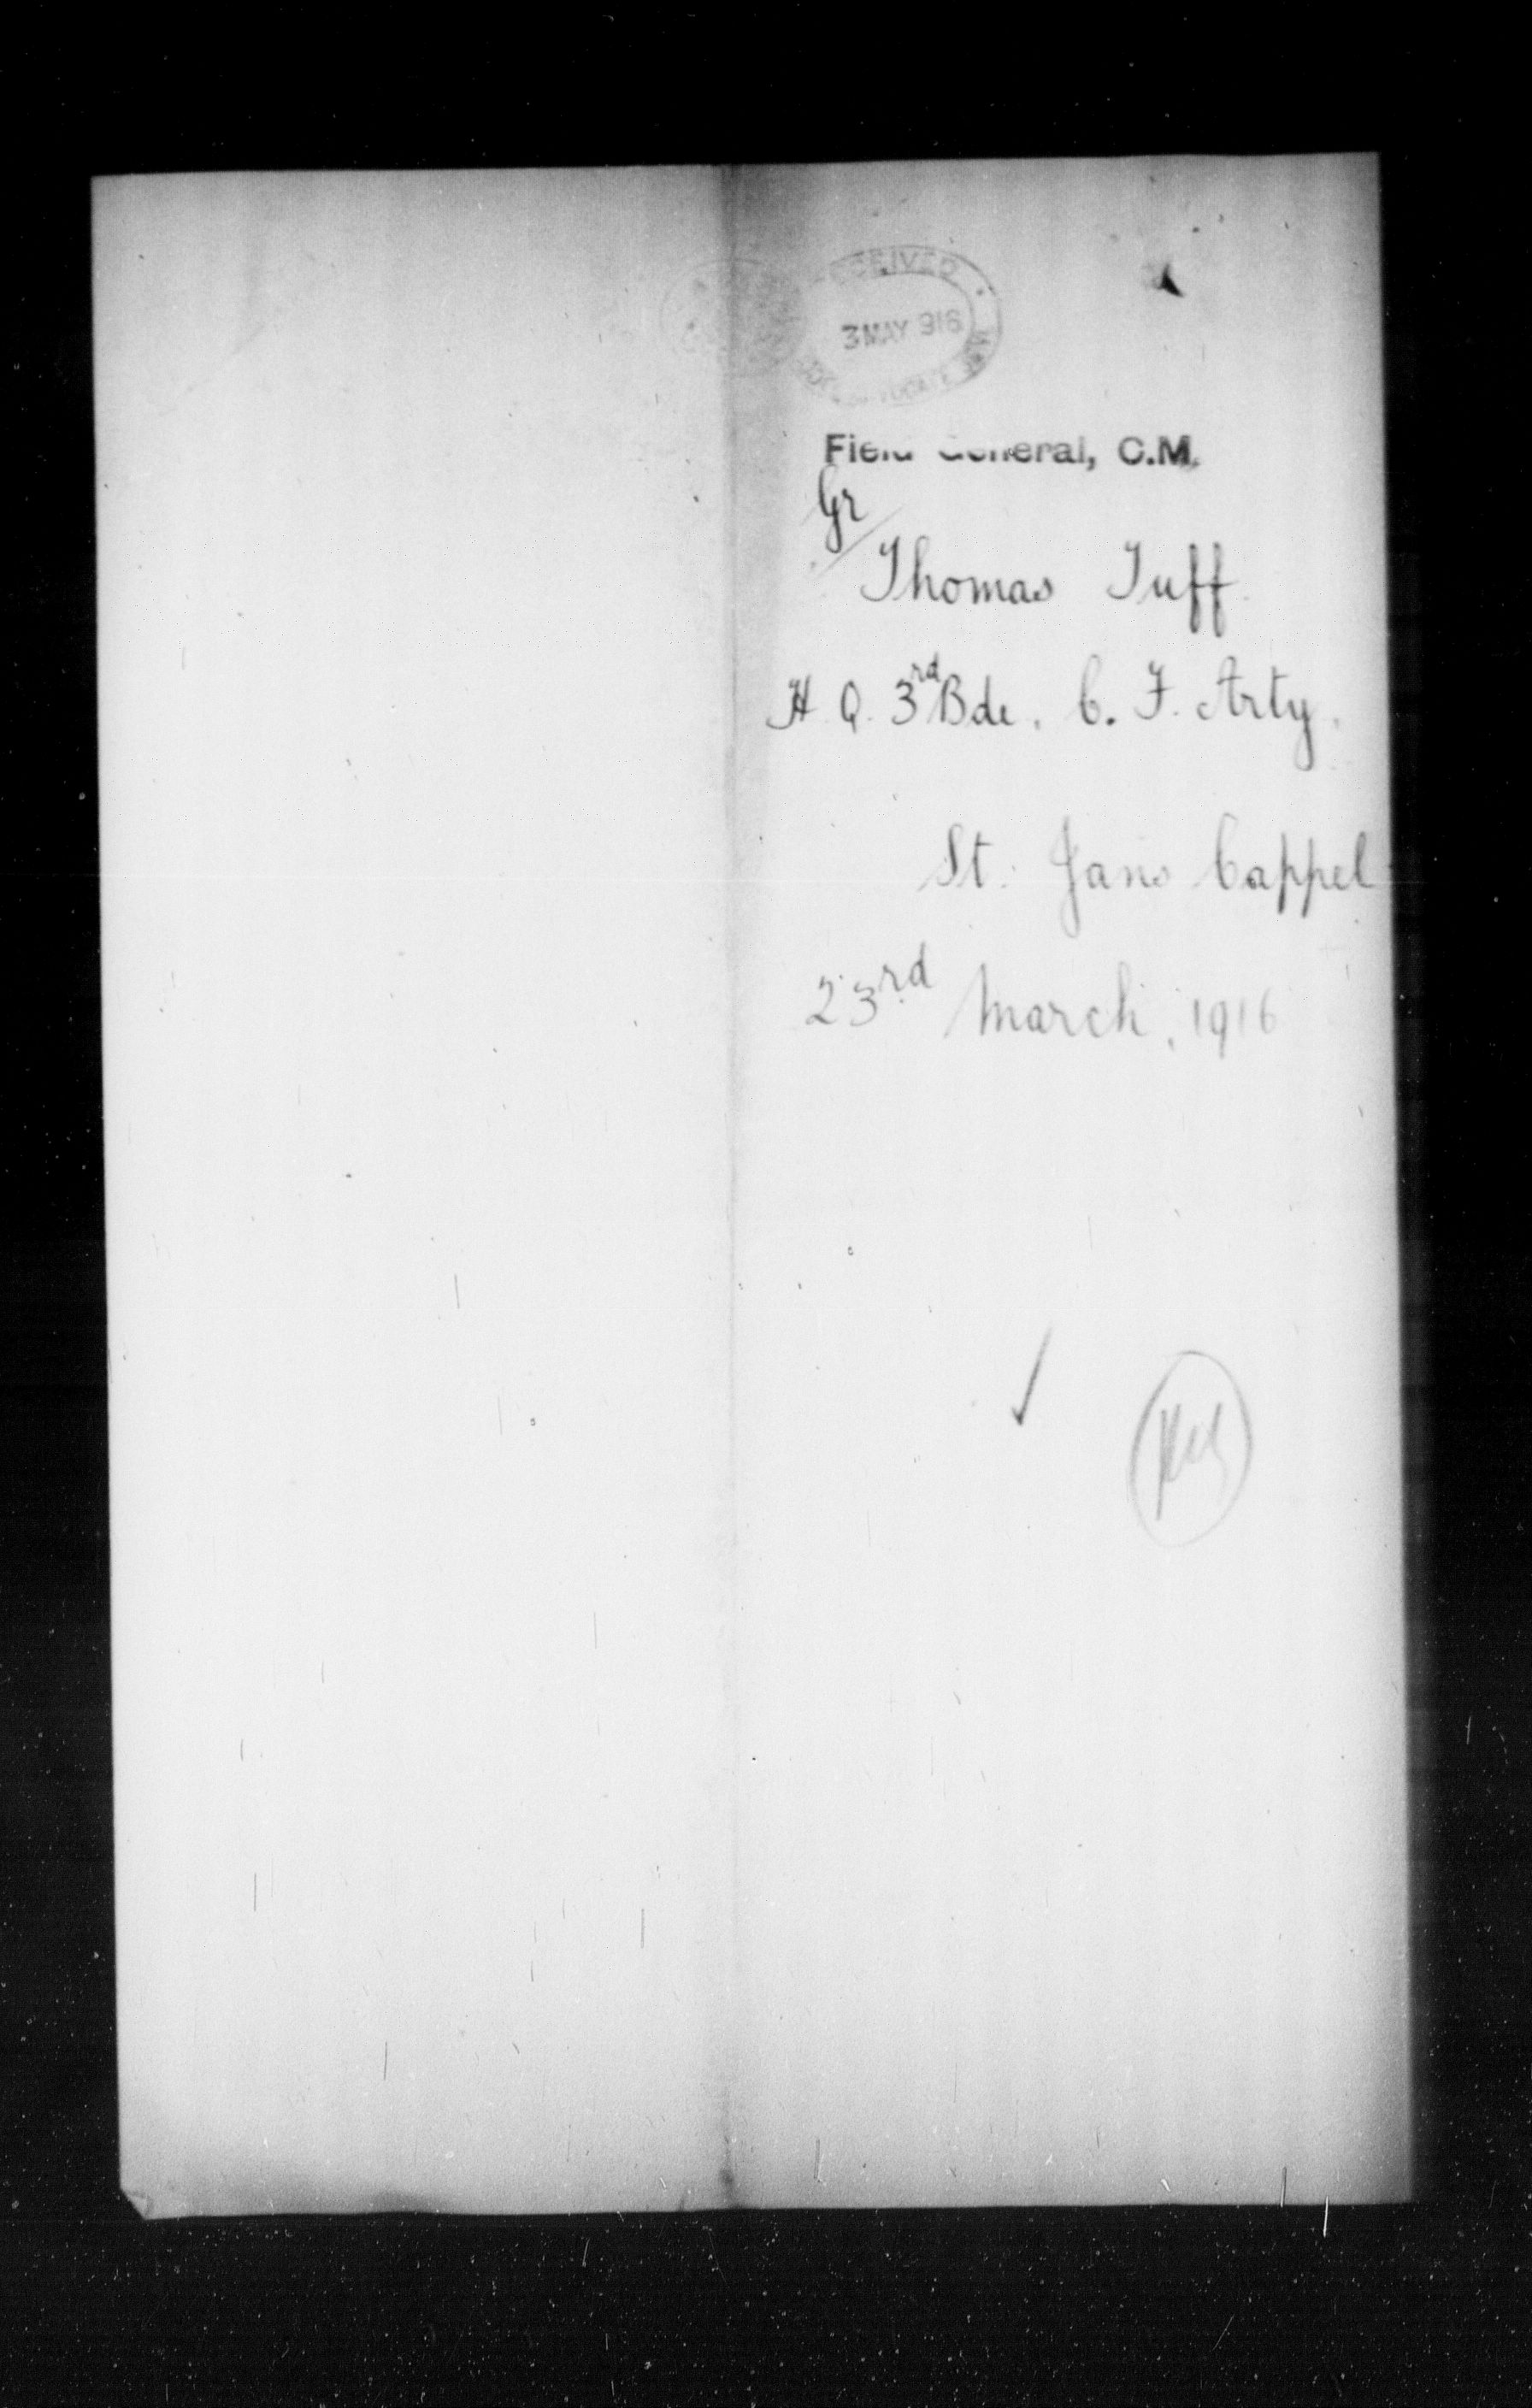 RECEIVED
3 MAY 916
Field General, C.M.
Gr
Thomas Tuff.
H. Q. 3rd Bde. C. F. Arty.
St. Jans Cappel
23rd March, 1916